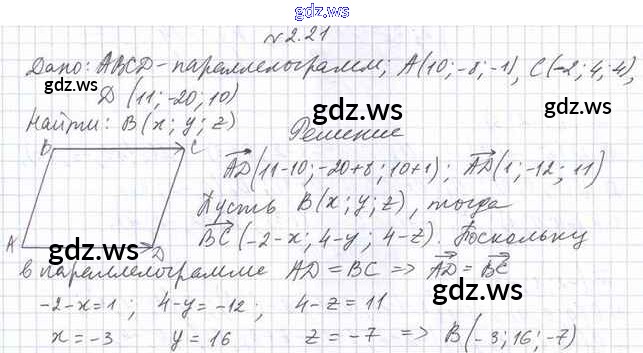 gdz.ws
№2.21
Дано: ABCD - параллелограмм, A(10; -8; -1), C(-2; 4; 4),
D (11; -20; 10)
gdz.ws
gdz.ws
Найти: B(x; y; z)
Решение
B C
AD(11-10; -20+8; 10+1); AD(1; -12; 11)
Пусть B(x; y; z), тогда
A D
gdz.ws
BC(-2-x; 4-y; 4-z). Поскольку
в параллелограмме AD = BC => AD = BC
gdz.ws
-2-x=1; 4-y=-12; 4-z=11
x=-3 y=16 z=-7 => B(-3; 16; -7)
gdz.ws